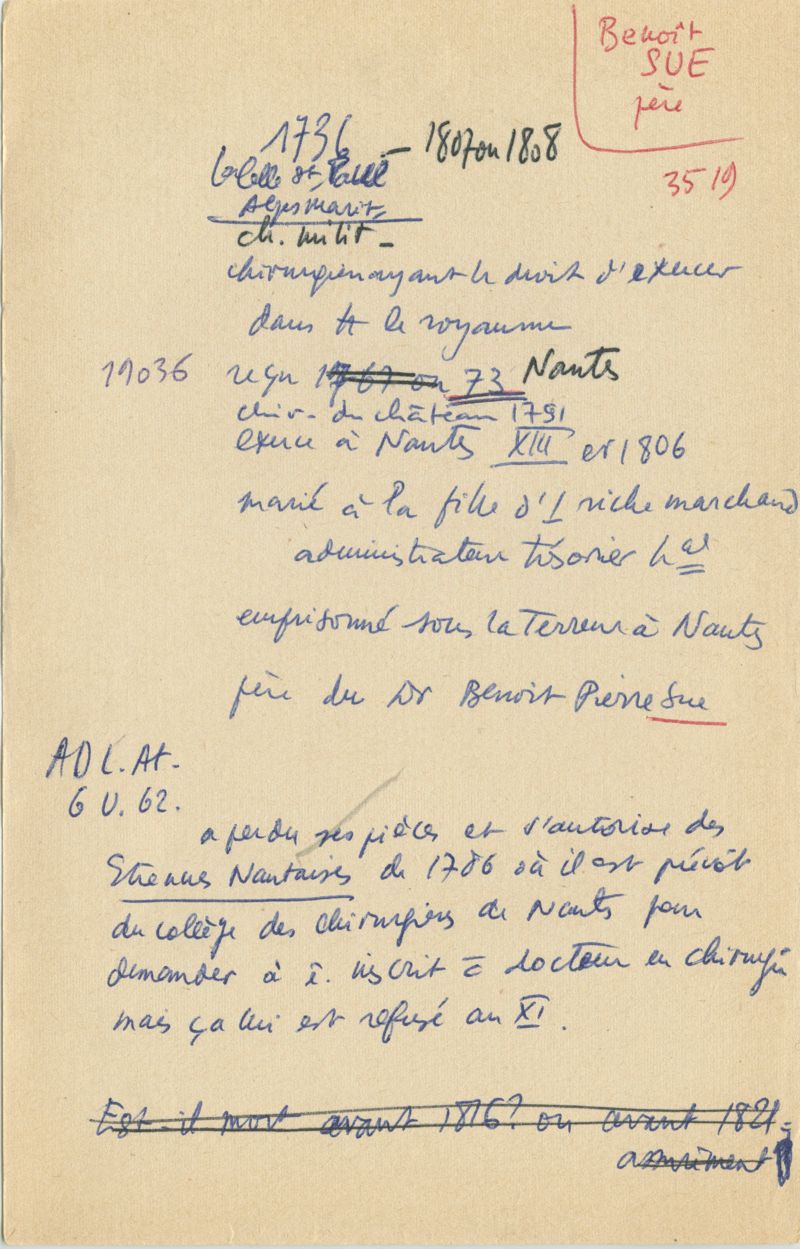 Benoît
SUE
père
3519
1736 – 1807 ou 1808
la Colle St Paul
Alpes marit.
ch. milit –
chirurgien ayant le droit d'exercer
dans tt le royaume
19036 reçu 1767 ou 73 Nantes
chir. du château 1791
exerce à Nantes XIII et 1806
marié à la fille d'1 riche marchand
administrateur trésorier hal
emprisonné sous la Terreur à Nantes
père du Dr Benoit Pierre Sue
AD L. At.
6 U. 62.
a perdu ses pièces et s'autorise des
Etrennes Nantaises de 1786 où il est prévôt
du collège des chirurgiens de Nantes pour
demander à ê. inscrit = docteur en chirurgie
mais ça lui est refusé an XI.
Est-il mort avant 1816? ou avant 1821 =
assurément